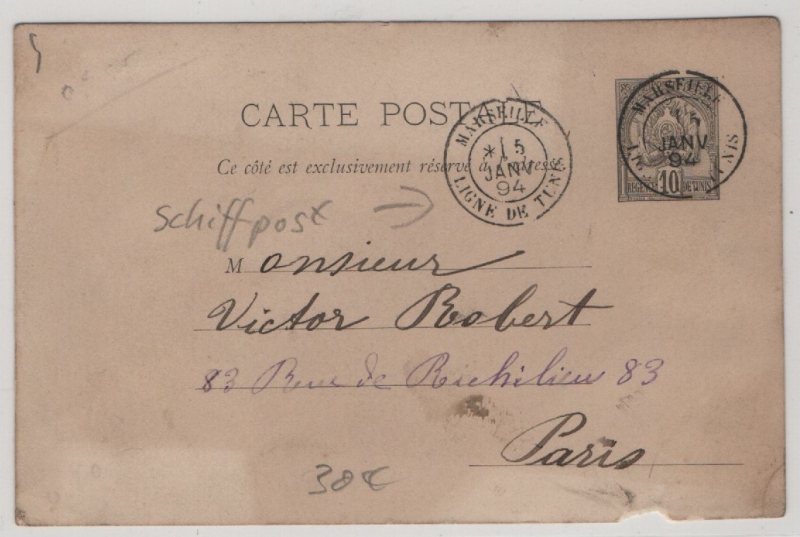 CARTE POSTALE
Ce côté est exclusivement réservé à l'adresse
MARSEILLE
* 5
JANV
94
LIGNE DE TUNIS
MARSEILLE
5
JANV
94
NIS
10
REGENCE DE TUNIS
Schiffpost →
Monsieur
Victor Robert
83 Rue de Richilieu 83
Paris
30€